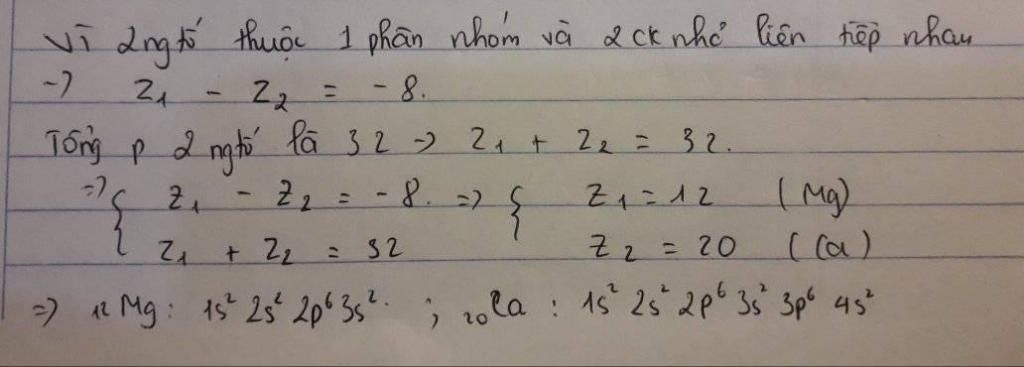 Vì 2 ngtố thuộc 1 phân nhóm và 2 ck nhỏ liên tiếp nhau
→ Z₁ - Z₂ = -8.
Tổng p 2 ngtố là 32 → Z₁ + Z₂ = 32.
=> { Z₁ - Z₂ = -8. => { Z₁ = 12 (Mg)
Z₁ + Z₂ = 32 Z₂ = 20 (Ca)
=> ₁₂Mg: 1s² 2s² 2p⁶ 3s². ; ₂₀Ca : 1s² 2s² 2p⁶ 3s² 3p⁶ 4s²